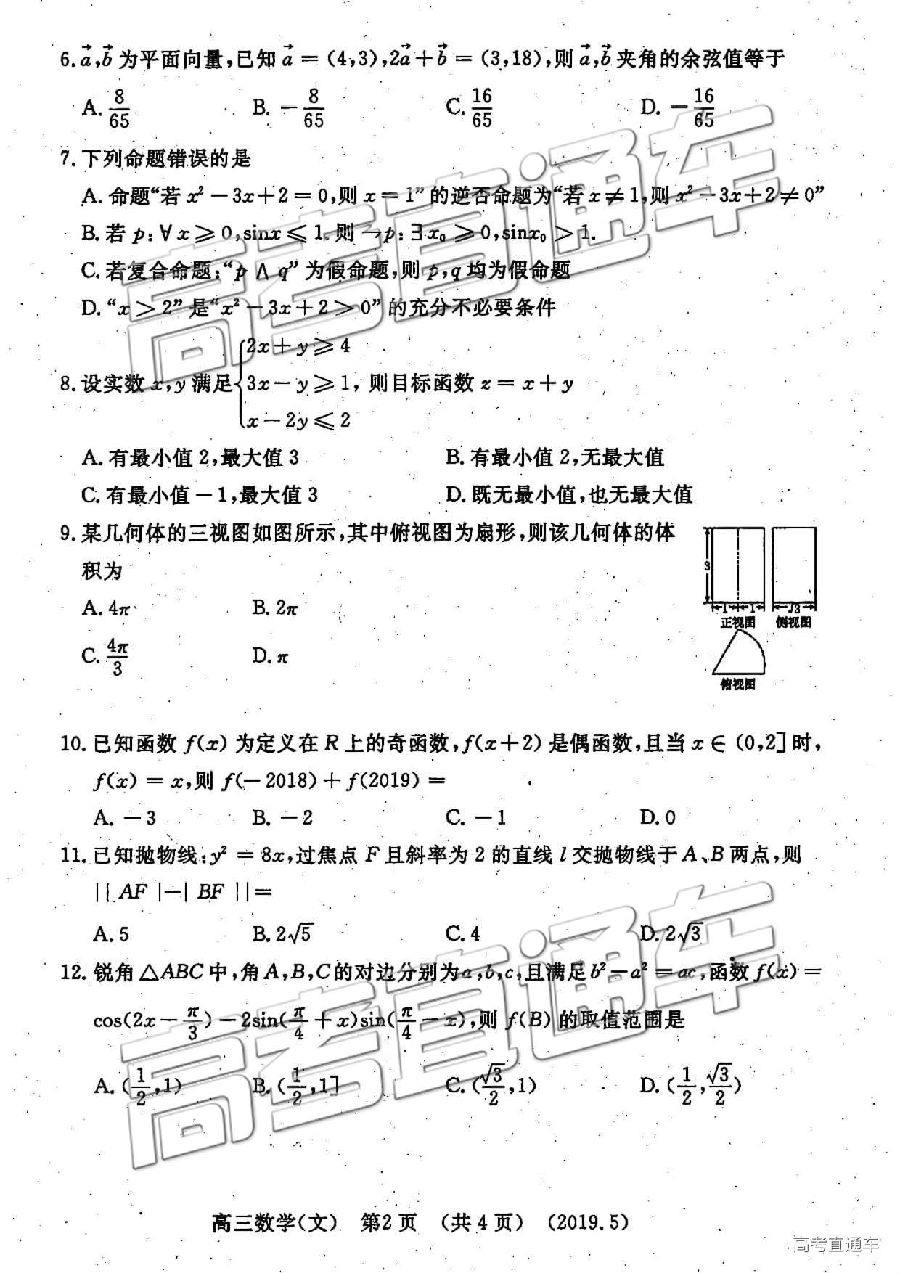 6. a⃗,b⃗ 为平面向量,已知 a⃗ = (4,3),2a⃗ + b⃗ = (3,18),则 a⃗,b⃗ 夹角的余弦值等于
A. 8/65 B. − 8/65 C. 16/65 D. − 16/65
7. 下列命题错误的是
A. 命题“若 x² − 3x + 2 = 0,则 x = 1”的逆否命题为“若 x ≠ 1,则 x² − 3x + 2 ≠ 0”
B. 若 p: ∀ x ⩾ 0,sinx ⩽ 1. 则 ¬p: ∃ x₀ ⩾ 0,sinx₀ > 1.
C. 若复合命题:“p ∧ q”为假命题,则 p,q 均为假命题
D. “x > 2”是“x² − 3x + 2 > 0”的充分不必要条件
8. 设实数 x,y 满足 { 2x + y ⩾ 4
3x − y ⩾ 1, 则目标函数 z = x + y
x − 2y ⩽ 2
A. 有最小值 2,最大值 3 B. 有最小值 2,无最大值
C. 有最小值 −1,最大值 3 D. 既无最小值,也无最大值
9. 某几何体的三视图如图所示,其中俯视图为扇形,则该几何体的体
积为
A. 4π B. 2π
C. 4π/3 D. π
3
1 1 √3
正视图 侧视图
俯视图
10. 已知函数 f(x) 为定义在 R 上的奇函数,f(x+2) 是偶函数,且当 x ∈ (0,2] 时,
f(x) = x,则 f(−2018) + f(2019) =
A. −3 B. −2 C. −1 D. 0
11. 已知抛物线:y² = 8x,过焦点 F 且斜率为 2 的直线 l 交抛物线于 A、B 两点,则
|| AF |−| BF || =
A. 5 B. 2√5 C. 4 D. 2√3
12. 锐角 △ABC 中,角 A,B,C 的对边分别为 a,b,c,且满足 b² − a² = ac,函数 f(x) =
cos(2x − π/3) − 2sin(π/4 + x)sin(π/4 − x),则 f(B) 的取值范围是
A. (1/2,1) B. (1/2,1] C. (√3/2,1) D. (1/2,√3/2)
高三数学(文) 第2页 (共4页) (2019.5)
高考直通车
高考直通车
高考直通车